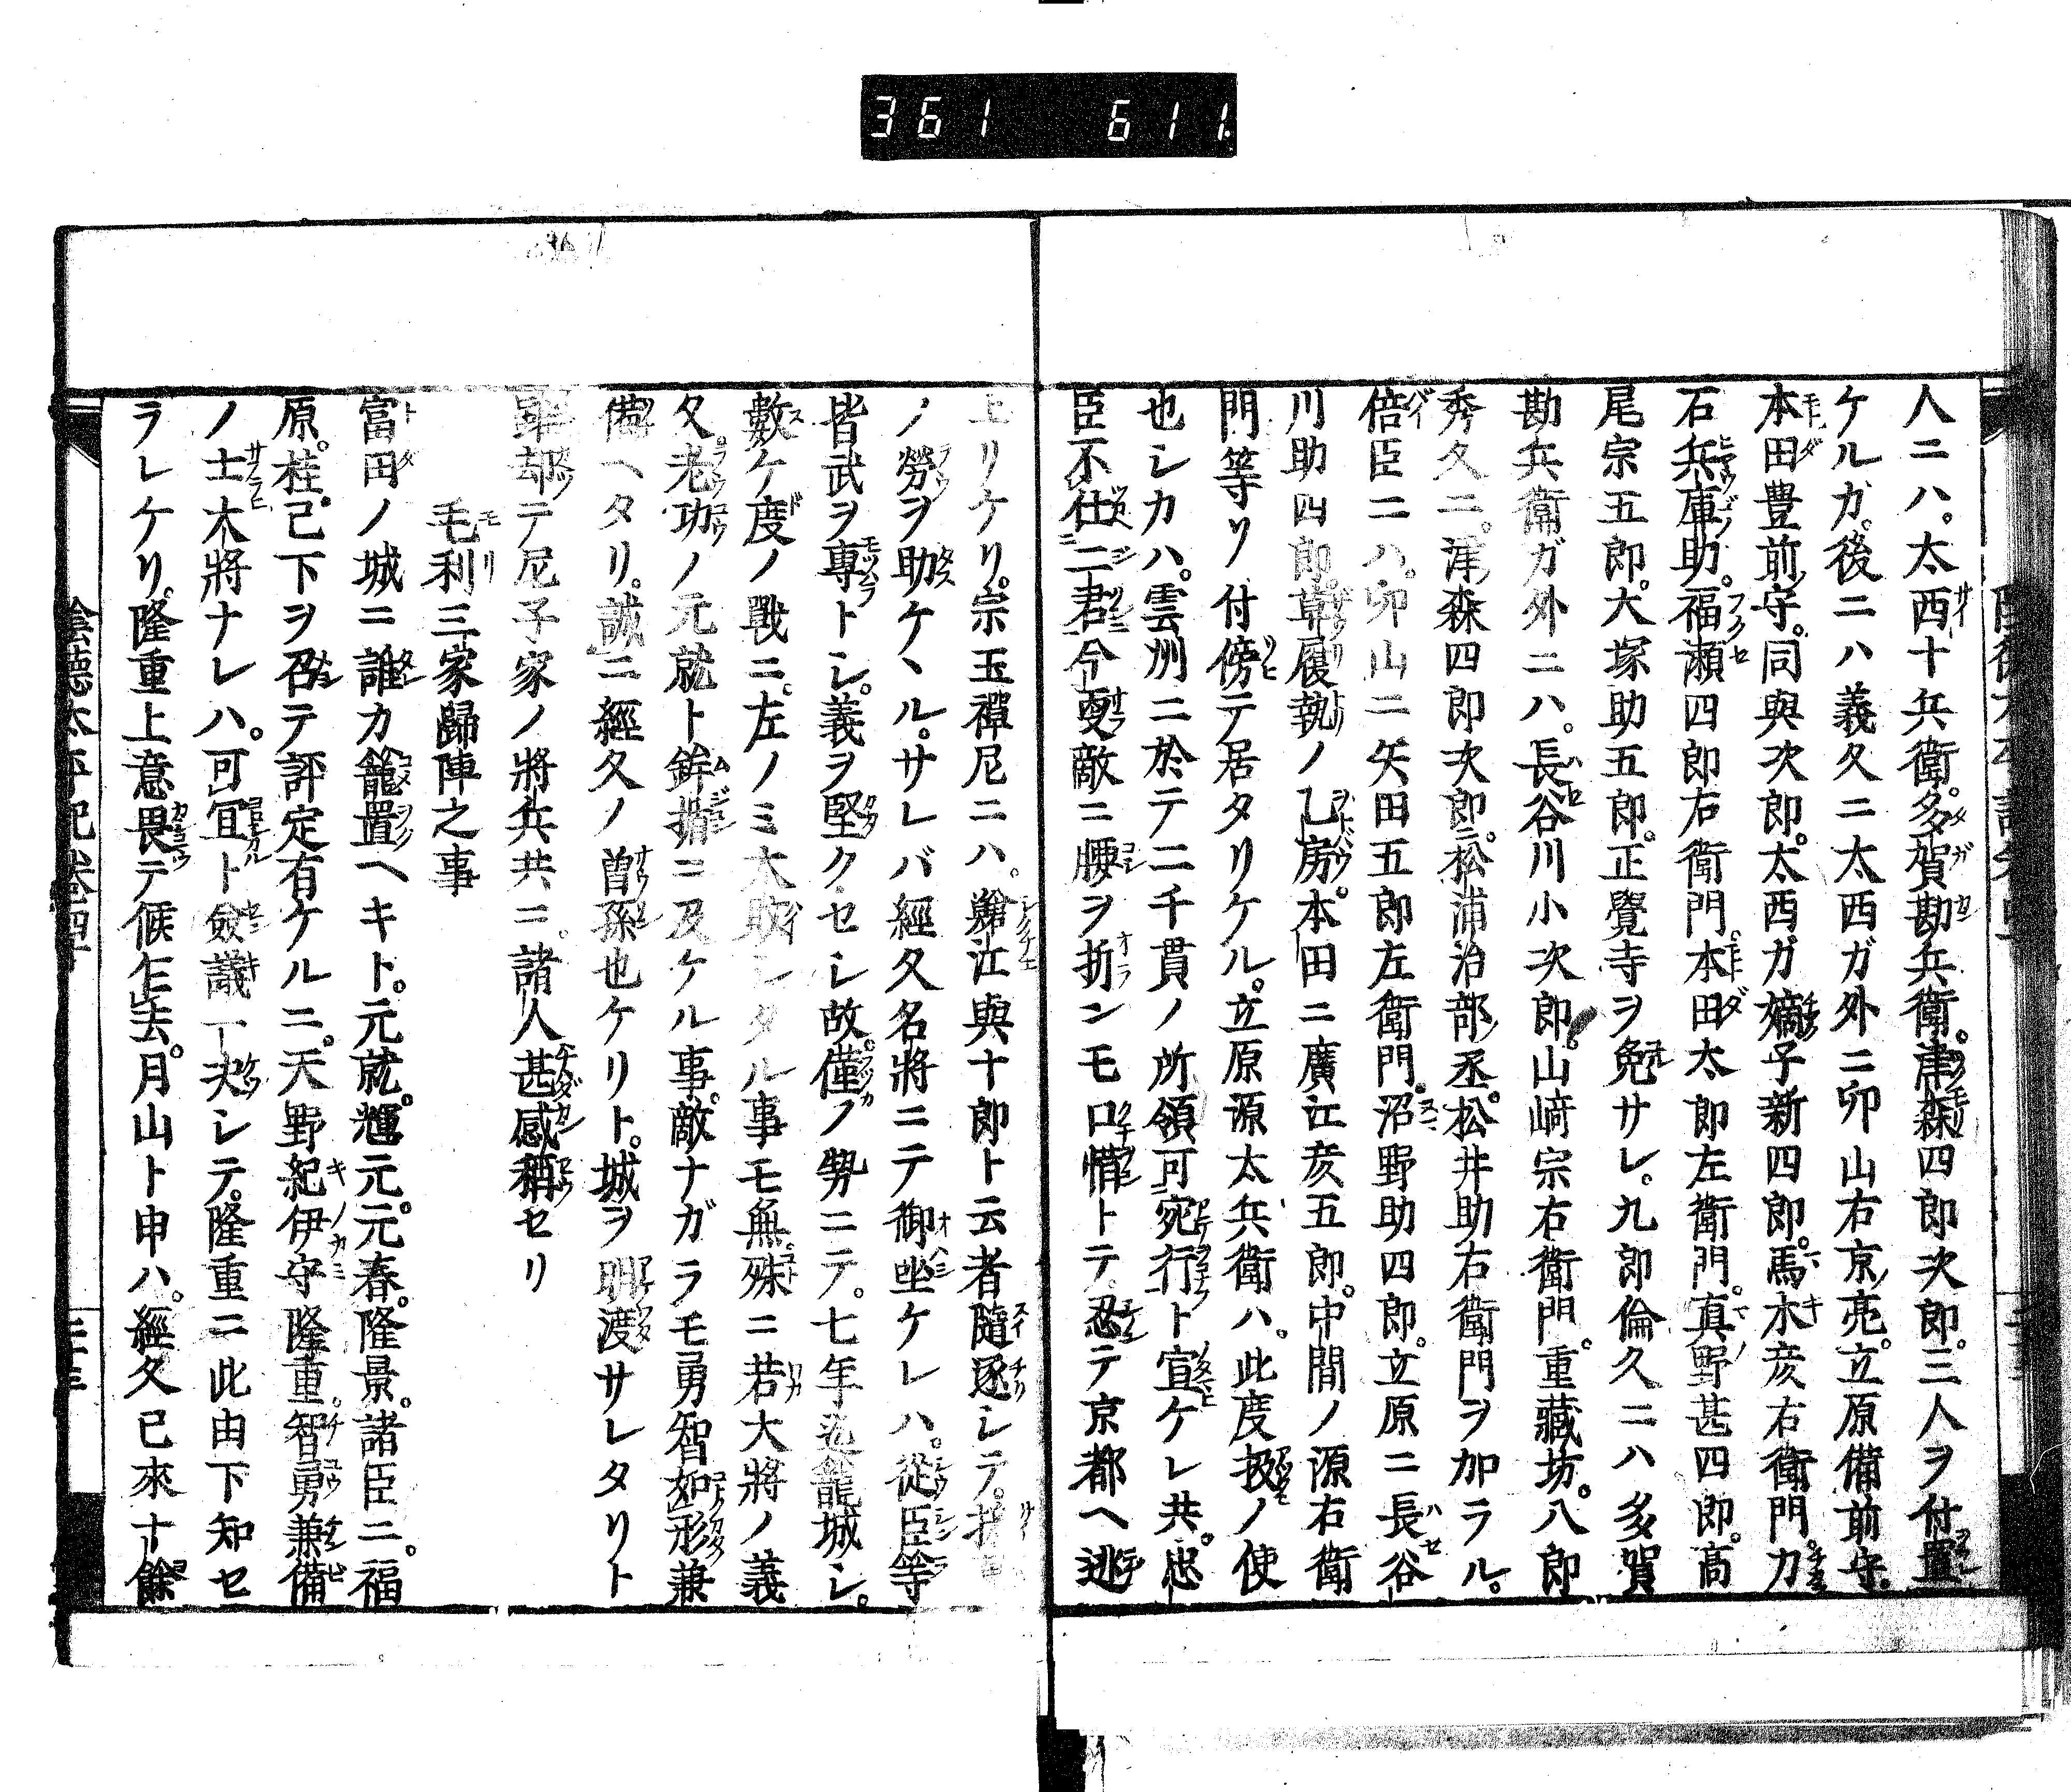 361 611
人ニハ。太西十兵衛。多賀勘兵衛。津森四郎次郎。三人ヲ付置
ケルガ。後ニハ義久ニ太西ガ外ニ卯山右京亮。立原備前守。
本田豊前守。同與次郎。太西ガ嫡子新四郎。馬木彦右衛門。力
石兵庫助。福瀬四郎右衛門。本田太郎左衛門。真野甚四郎。高
尾宗五郎。大塚助五郎。正覺寺ヲ免サレ。九郎倫久ニハ多賀
勘兵衛ガ外ニハ。長谷川小次郎。山﨑宗右衛門。重藏坊。八郎
秀久ニ。津森四郎次郎。松浦治部丞。松井助右衛門ヲ加ラル。
倍臣ニハ。卯山ニ矢田五郎左衛門。沼野助四郎。立原ニ長谷
川助四郎。草履執ノ乙房。本田ニ廣江彦五郎。中間ノ源右衛
門等リノ付傍テ居タリケル。立原源太兵衛ハ。此度扱ノ使
也シカハ。雲州ニ於テ二千貫ノ所領可宛行ト宣ケレ共。忠
臣不仕二君今更敵ニ腰ヲ折ンモ口惜トテ。忍テ京都ヘ逃
上リケリ。宗玉禪尼ニハ。江與十郎ト云者隨逐シテ。
ノ勞ヲ助ケヽル。サレバ經久名將ニテ御坐ケレハ。從臣等
皆武ヲ專トシ。義ヲ堅クセシ故。僅ノ勢ニテ。七年籠城シ。
數ケ度ノ戰ニ。左ノミ大敗シタル事モ無。殊ニ若大將ノ義
久。老功ノ元就ト鉾楯ニ及ケル事。敵ナガラモ勇智如形兼
備ヘタリ。誠ニ經久ノ曽孫也ケリト。城ヲ明渡サレタリト
却テ尼子家ノ將兵共ニ。諸人甚感稱セリ
毛利三家歸陣之事
富田ノ城ニ誰カ籠置ヘキト。元就。輝元。元春。隆景。諸臣ニ。福
原。桂。己下ヲ召テ評定有ケルニ。天野紀伊守隆重。智勇兼備
ノ士大將ナレハ。可宜ト僉議一決シテ。隆重ニ此由下知セ
ラレケリ。隆重上意畏テ候乍去。月山ト申ハ。經久已來十餘
陰德太平記卷四十